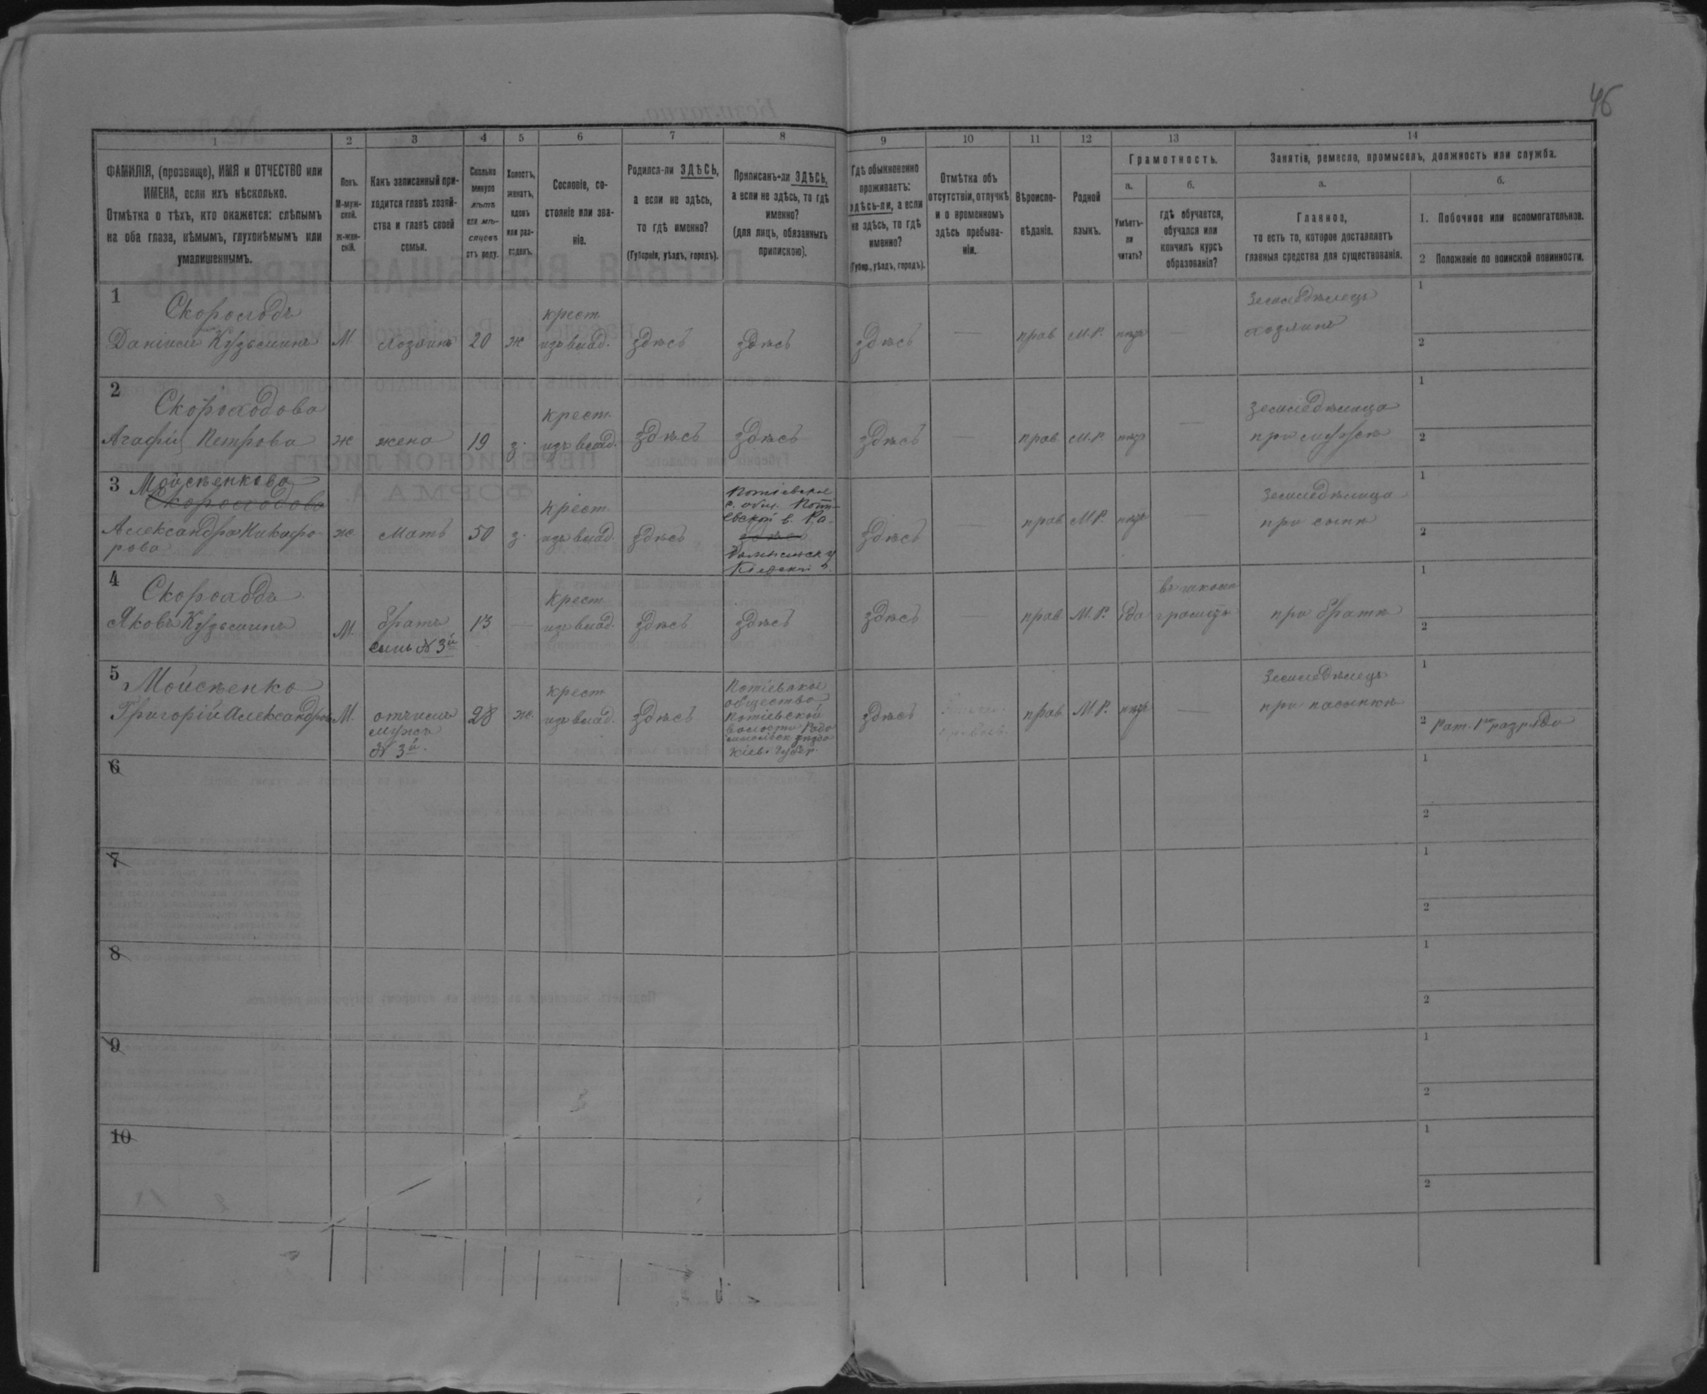 46
1 2 3 4 5 6 7 8 9 10 11 12 13 14
ФАМИЛІЯ, (прозвище), ИМЯ и ОТЧЕСТВО или
ИМЕНА, если ихъ нѣсколько.
Отмѣтка о тѣхъ, кто окажется: слѣпымъ
на оба глаза, нѣмымъ, глухонѣмымъ или
умалишеннымъ.
Полъ.
М-муж-
ской.
Ж-жен-
скій.
Какъ записанный при-
ходится главѣ хозяй-
ства и главѣ своей
семьи.
Сколько
минуло
лѣтъ
или мѣ-
сяцевъ
отъ роду.
Холостъ,
женатъ,
вдовъ
или раз-
веденъ.
Сословіе, со-
стояніе или зва-
ніе.
Родился-ли ЗДѢСЬ,
а если не здѣсь,
то гдѣ именно?
(Губернія, уѣздъ, городъ).
Приписанъ-ли ЗДѢСЬ,
а если не здѣсь, то гдѣ
именно?
(для лицъ, обязанныхъ
припискою).
Гдѣ обыкновенно
проживаетъ:
здѣсь-ли, а если
не здѣсь, то гдѣ
именно?
(Губер., уѣздъ, городъ).
Отмѣтка объ
отсутствіи, отлучкѣ
и о временномъ
здѣсь пребыва-
ніи.
Вѣроиспо-
вѣданіе.
Родной
языкъ.
Грамотность.
а.
Умѣетъ-
ли
читать?
б.
гдѣ обучается,
обучался или
кончилъ курсъ
образованія?
Занятіе, ремесло, промыселъ, должность или служба.
а.
Главное,
то есть то, которое доставляетъ
главныя средства для существованія.
б.
1. Побочное или вспомогательное.
2 Положеніе по воинской повинности.
1
Скороходъ
Даніилъ Кузьминъ М хозяинъ 20 ж крест изъ влад. здѣсь здѣсь здѣсь — прав М.Р. нѣтъ — Земледѣлецъ хозяинъ 1 2
2
Скороходова
Агафія Петрова ж жена 19 з. крест изъ влад. здѣсь здѣсь здѣсь — прав М.Р. нѣтъ — Земледѣлица при мужѣ 1 2
3 Мойсѣенкова
Скороходова
Александра Никифо-
рова ж Мать 50 з. крест изъ влад здѣсь
здѣсь — прав М.Р. нѣтъ — Земледѣлица при сынѣ 1 2
4
Скороходъ
Яковъ Кузьминъ М. братъ 13 — крест изъ влад здѣсь здѣсь здѣсь — прав М.Р. да при братѣ 1 2
сынъ № 3й
5 Мойсѣенко
Григорій Александров М. отчимъ 28 ж крест изъ влад. здѣсь
мужъ
№ 3й.
Потіевское
общество
Потіевской
волости Радо
Кіев. губер.
здѣсь прав М.Р. нѣтъ — Земледѣлецъ при пасынкѣ 1
2 Рат. 1го разряда
6 1 2
7 1 2
8 1 2
9 1 2
10 1 2